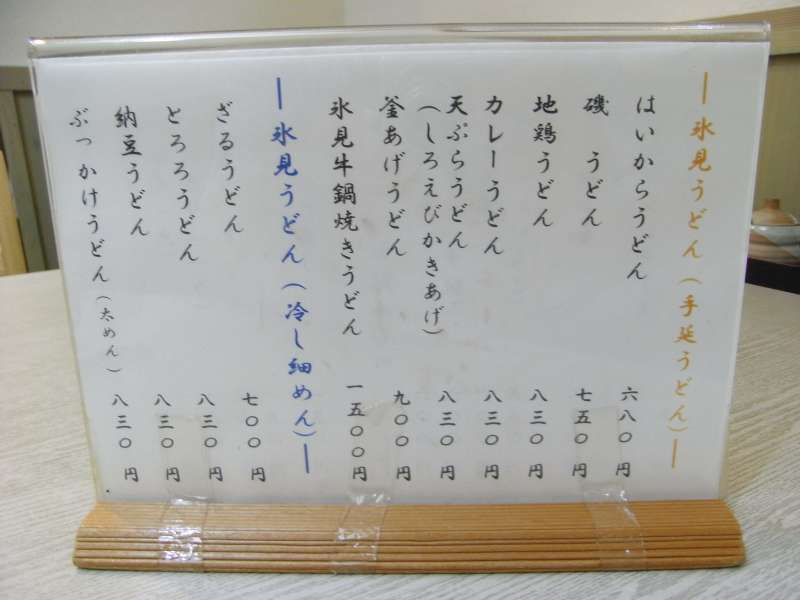 氷見うどん（手延うどん）
はいからうどん 六八〇円
磯 うどん 七五〇円
地鶏うどん 八三〇円
カレーうどん 八三〇円
天ぷらうどん 八三〇円
（しろえびかきあげ）
釜あげうどん 九〇〇円
氷見牛鍋焼きうどん 一五〇〇円
氷見うどん（冷し細めん）
ざるうどん 七〇〇円
とろろうどん 八三〇円
納豆うどん 八三〇円
ぶっかけうどん（太めん） 八三〇円